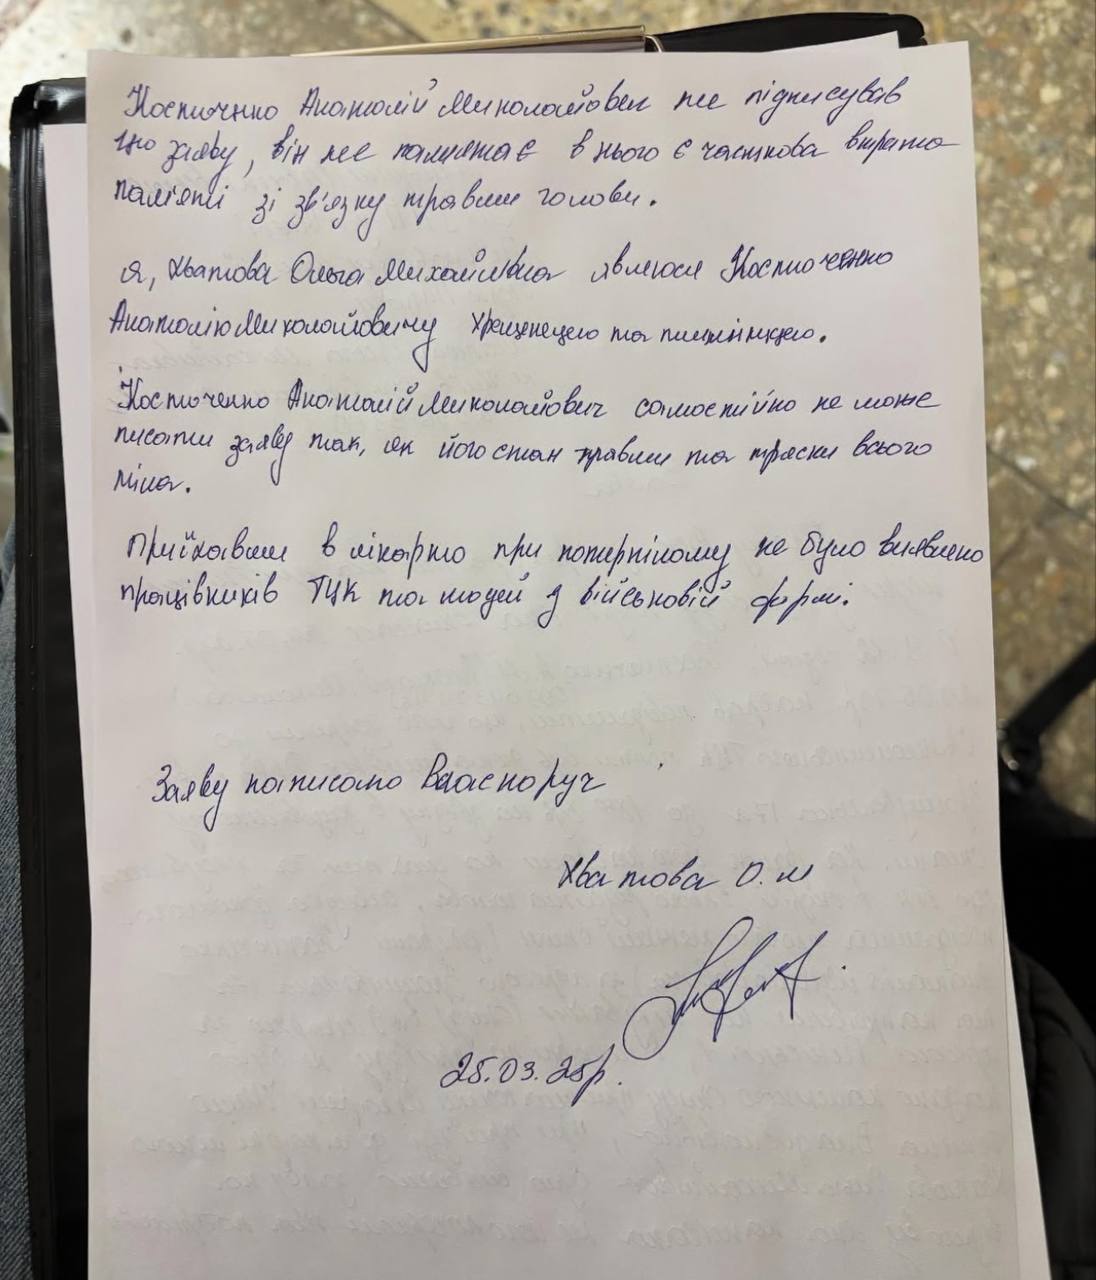 Костюченко Анатолій Миколайович не підписував
цю заяву, він не памятає в нього є часткова втрата
пам'яті зі зв'язку травми голови.
я, Хватова Ольга Михайлівна являюся Костюченко
Анатолію Миколайовичу Хрещенецею та племінницею.
Костюченко Анатолій Миколайович самостійно не може
писати заяву так, як його стан травми та тряски всього
тіла.
Приїхавши в лікарню при потерпілому не було виявлено
працівників ТЦК та людей у військовій формі.
Заяву написано Власноруч
Хватова О. М
25.03.25р.